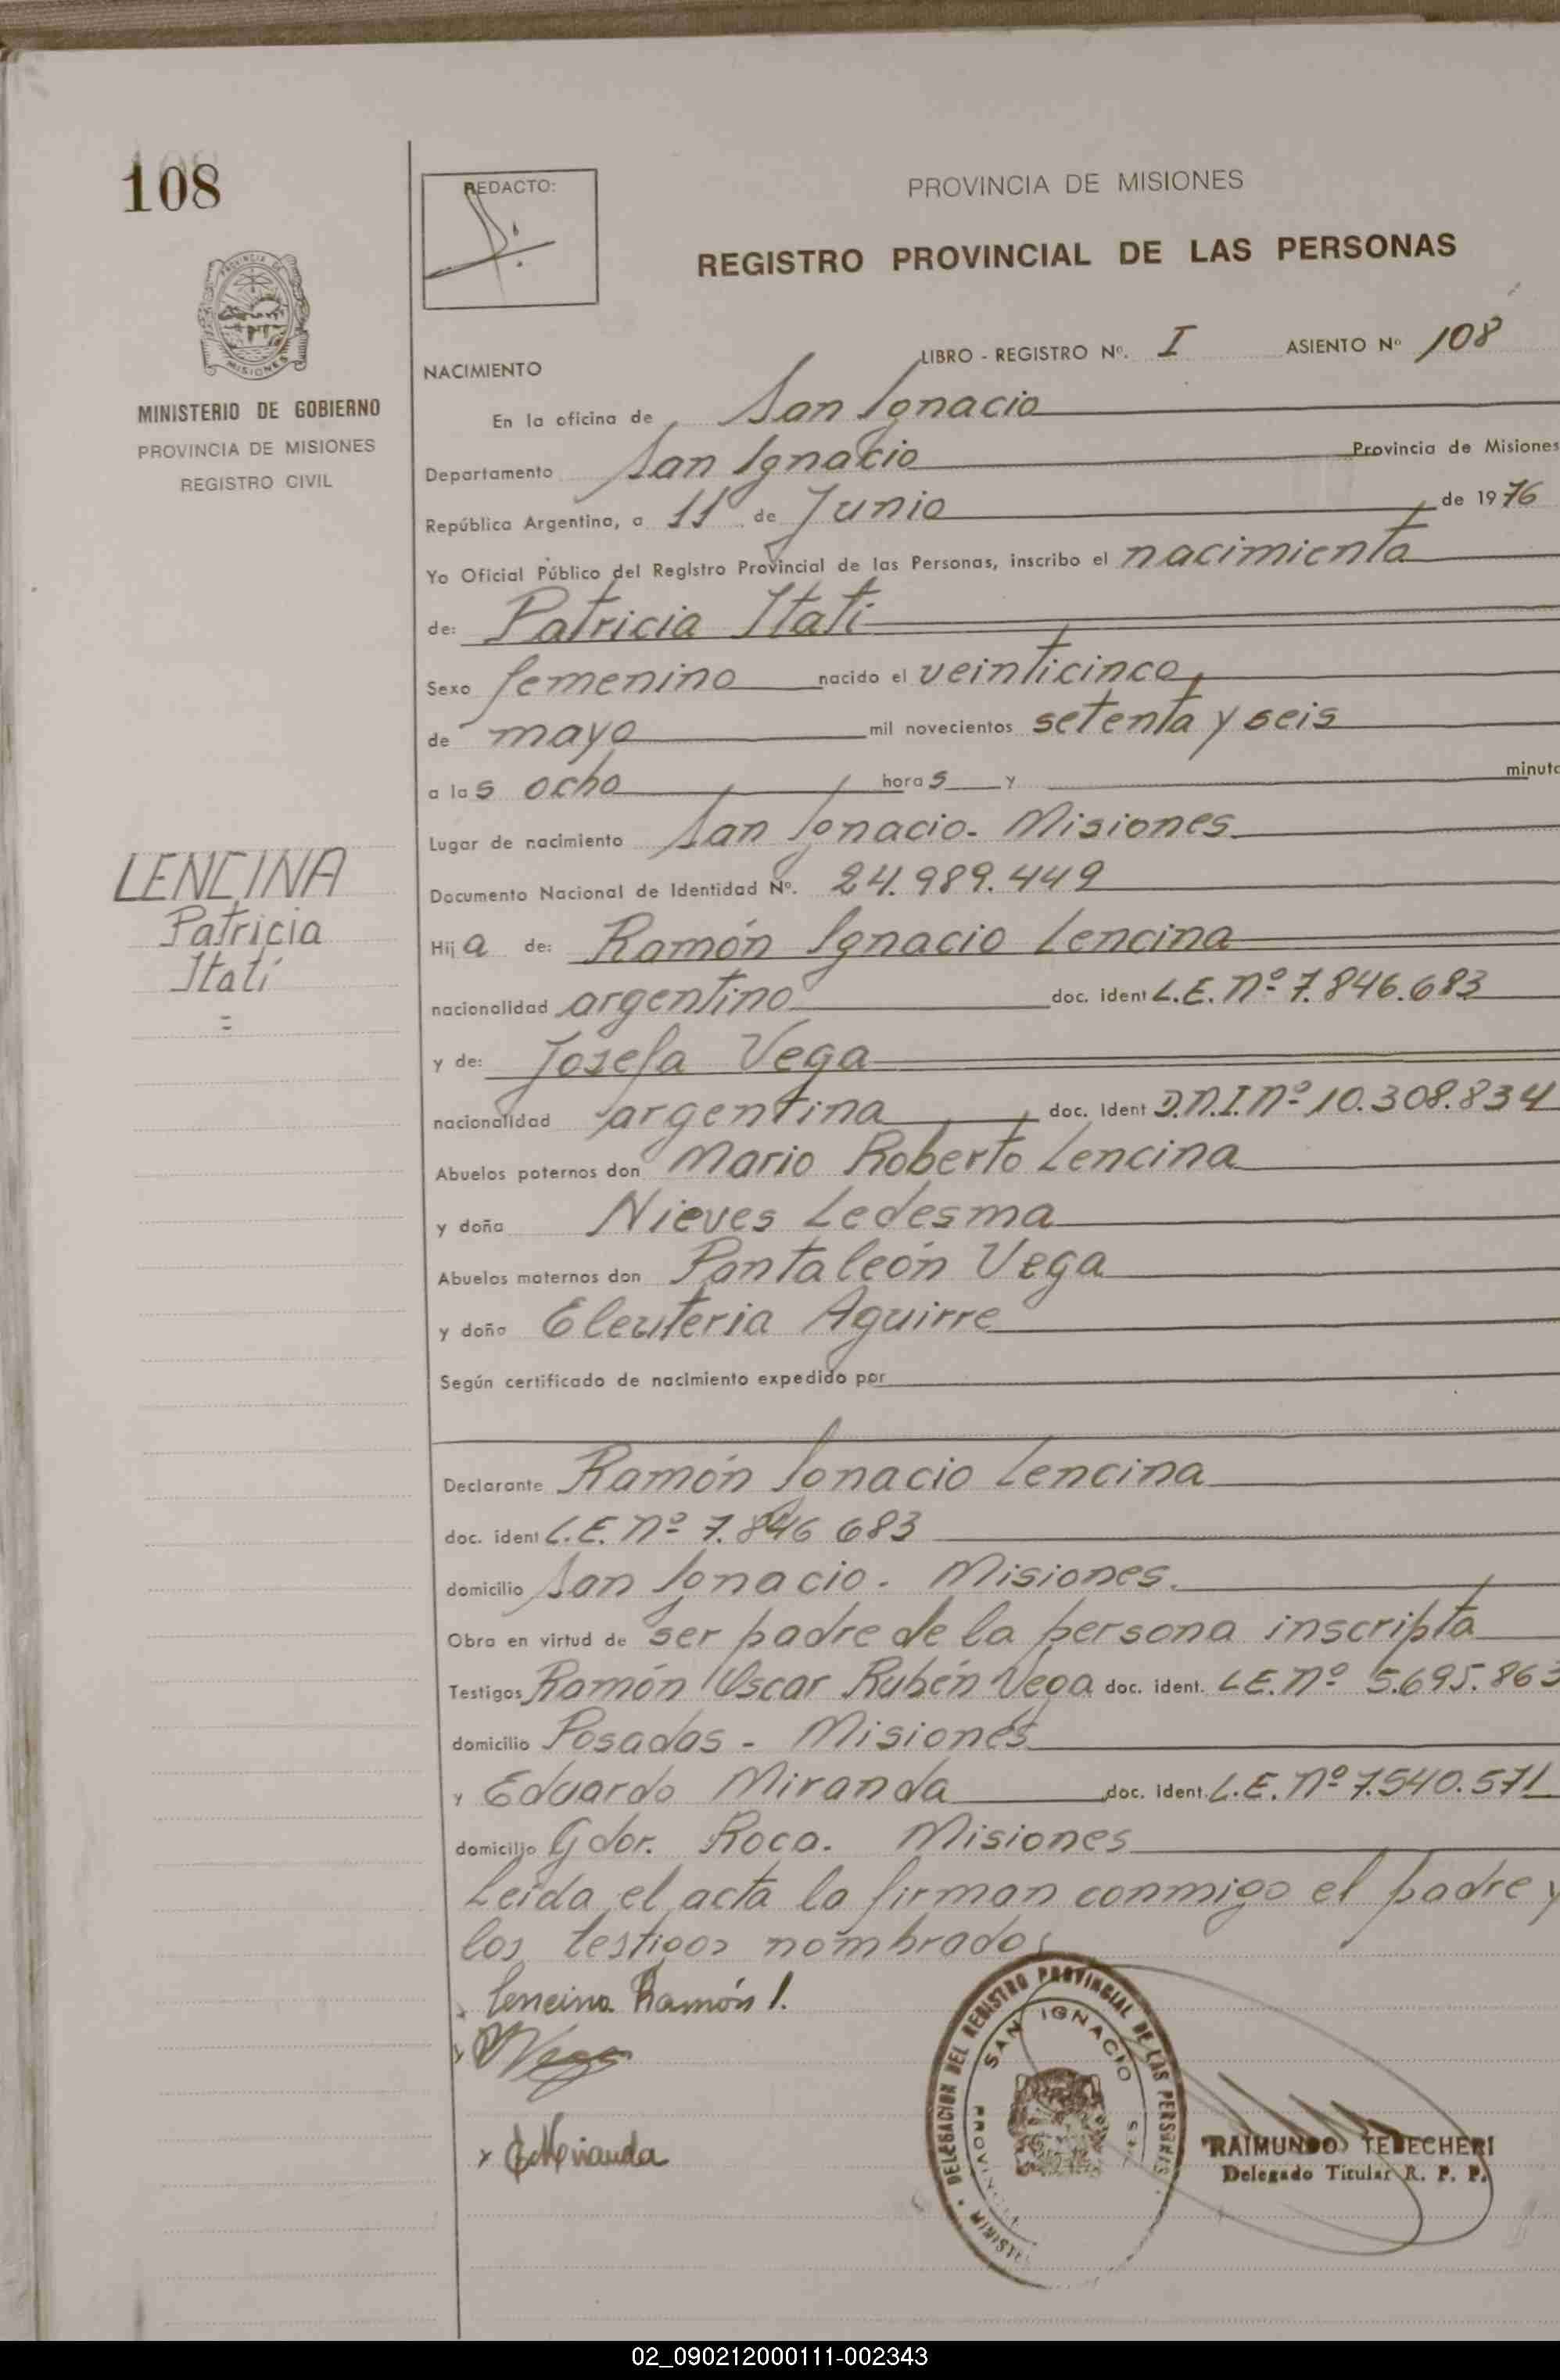 108
REDACTO:
PROVINCIA DE MISIONES
REGISTRO PROVINCIAL DE LAS PERSONAS
PROVINCIA DE
MISIONES
MINISTERIO DE GOBIERNO
PROVINCIA DE MISIONES
REGISTRO CIVIL
LIBRO - REGISTRO Nº. I ASIENTO Nº 108
NACIMIENTO
En la oficina de San Ignacio
Departamento San Ignacio Provincia de Misiones
República Argentina, a 11 de Junio de 1976
Yo Oficial Público del Registro Provincial de las Personas, inscribo el nacimiento
de: Patricia Itatí
Sexo femenino nacido el veinticinco
de mayo mil novecientos setenta y seis
a las ocho horas y minuto
Lugar de nacimiento San Ignacio. Misiones
Documento Nacional de Identidad Nº. 24.989.449
LENCINA
Patricia
Itatí
=
Hija de: Ramón Ignacio Lencina
nacionalidad argentino doc. ident L.E. Nº 7.846.683
y de: Josefa Vega
nacionalidad argentina doc. Ident D.N.I. Nº 10.308.834
Abuelos paternos don Mario Roberto Lencina
y doña Nieves Ledesma
Abuelos maternos don Pantaleón Vega
y doña Eleuteria Aguirre
Según certificado de nacimiento expedido por
Declarante Ramón Ignacio Lencina
doc. ident L.E. Nº 7.846 683
domicilio San Ignacio. Misiones.
Obra en virtud de ser padre de la persona inscripta
Testigos Ramón Oscar Rubén Vega doc. ident. L.E. Nº 5.695.863
domicilio Posadas - Misiones
y Eduardo Miranda doc. ident. L.E. Nº 7.540.571
domicilio Gdor. Roca. Misiones
Leída el acta la firman conmigo el padre y
los testigos nombrados
Lencina Ramón I.
Vega
x E Miranda
DELEGACION DEL REGISTRO PROVINCIAL DE LAS PERSONAS
SAN IGNACIO
RAIMUNDO TEBECHERI
Delegado Titular R. P. P.
02_090212000111-002343